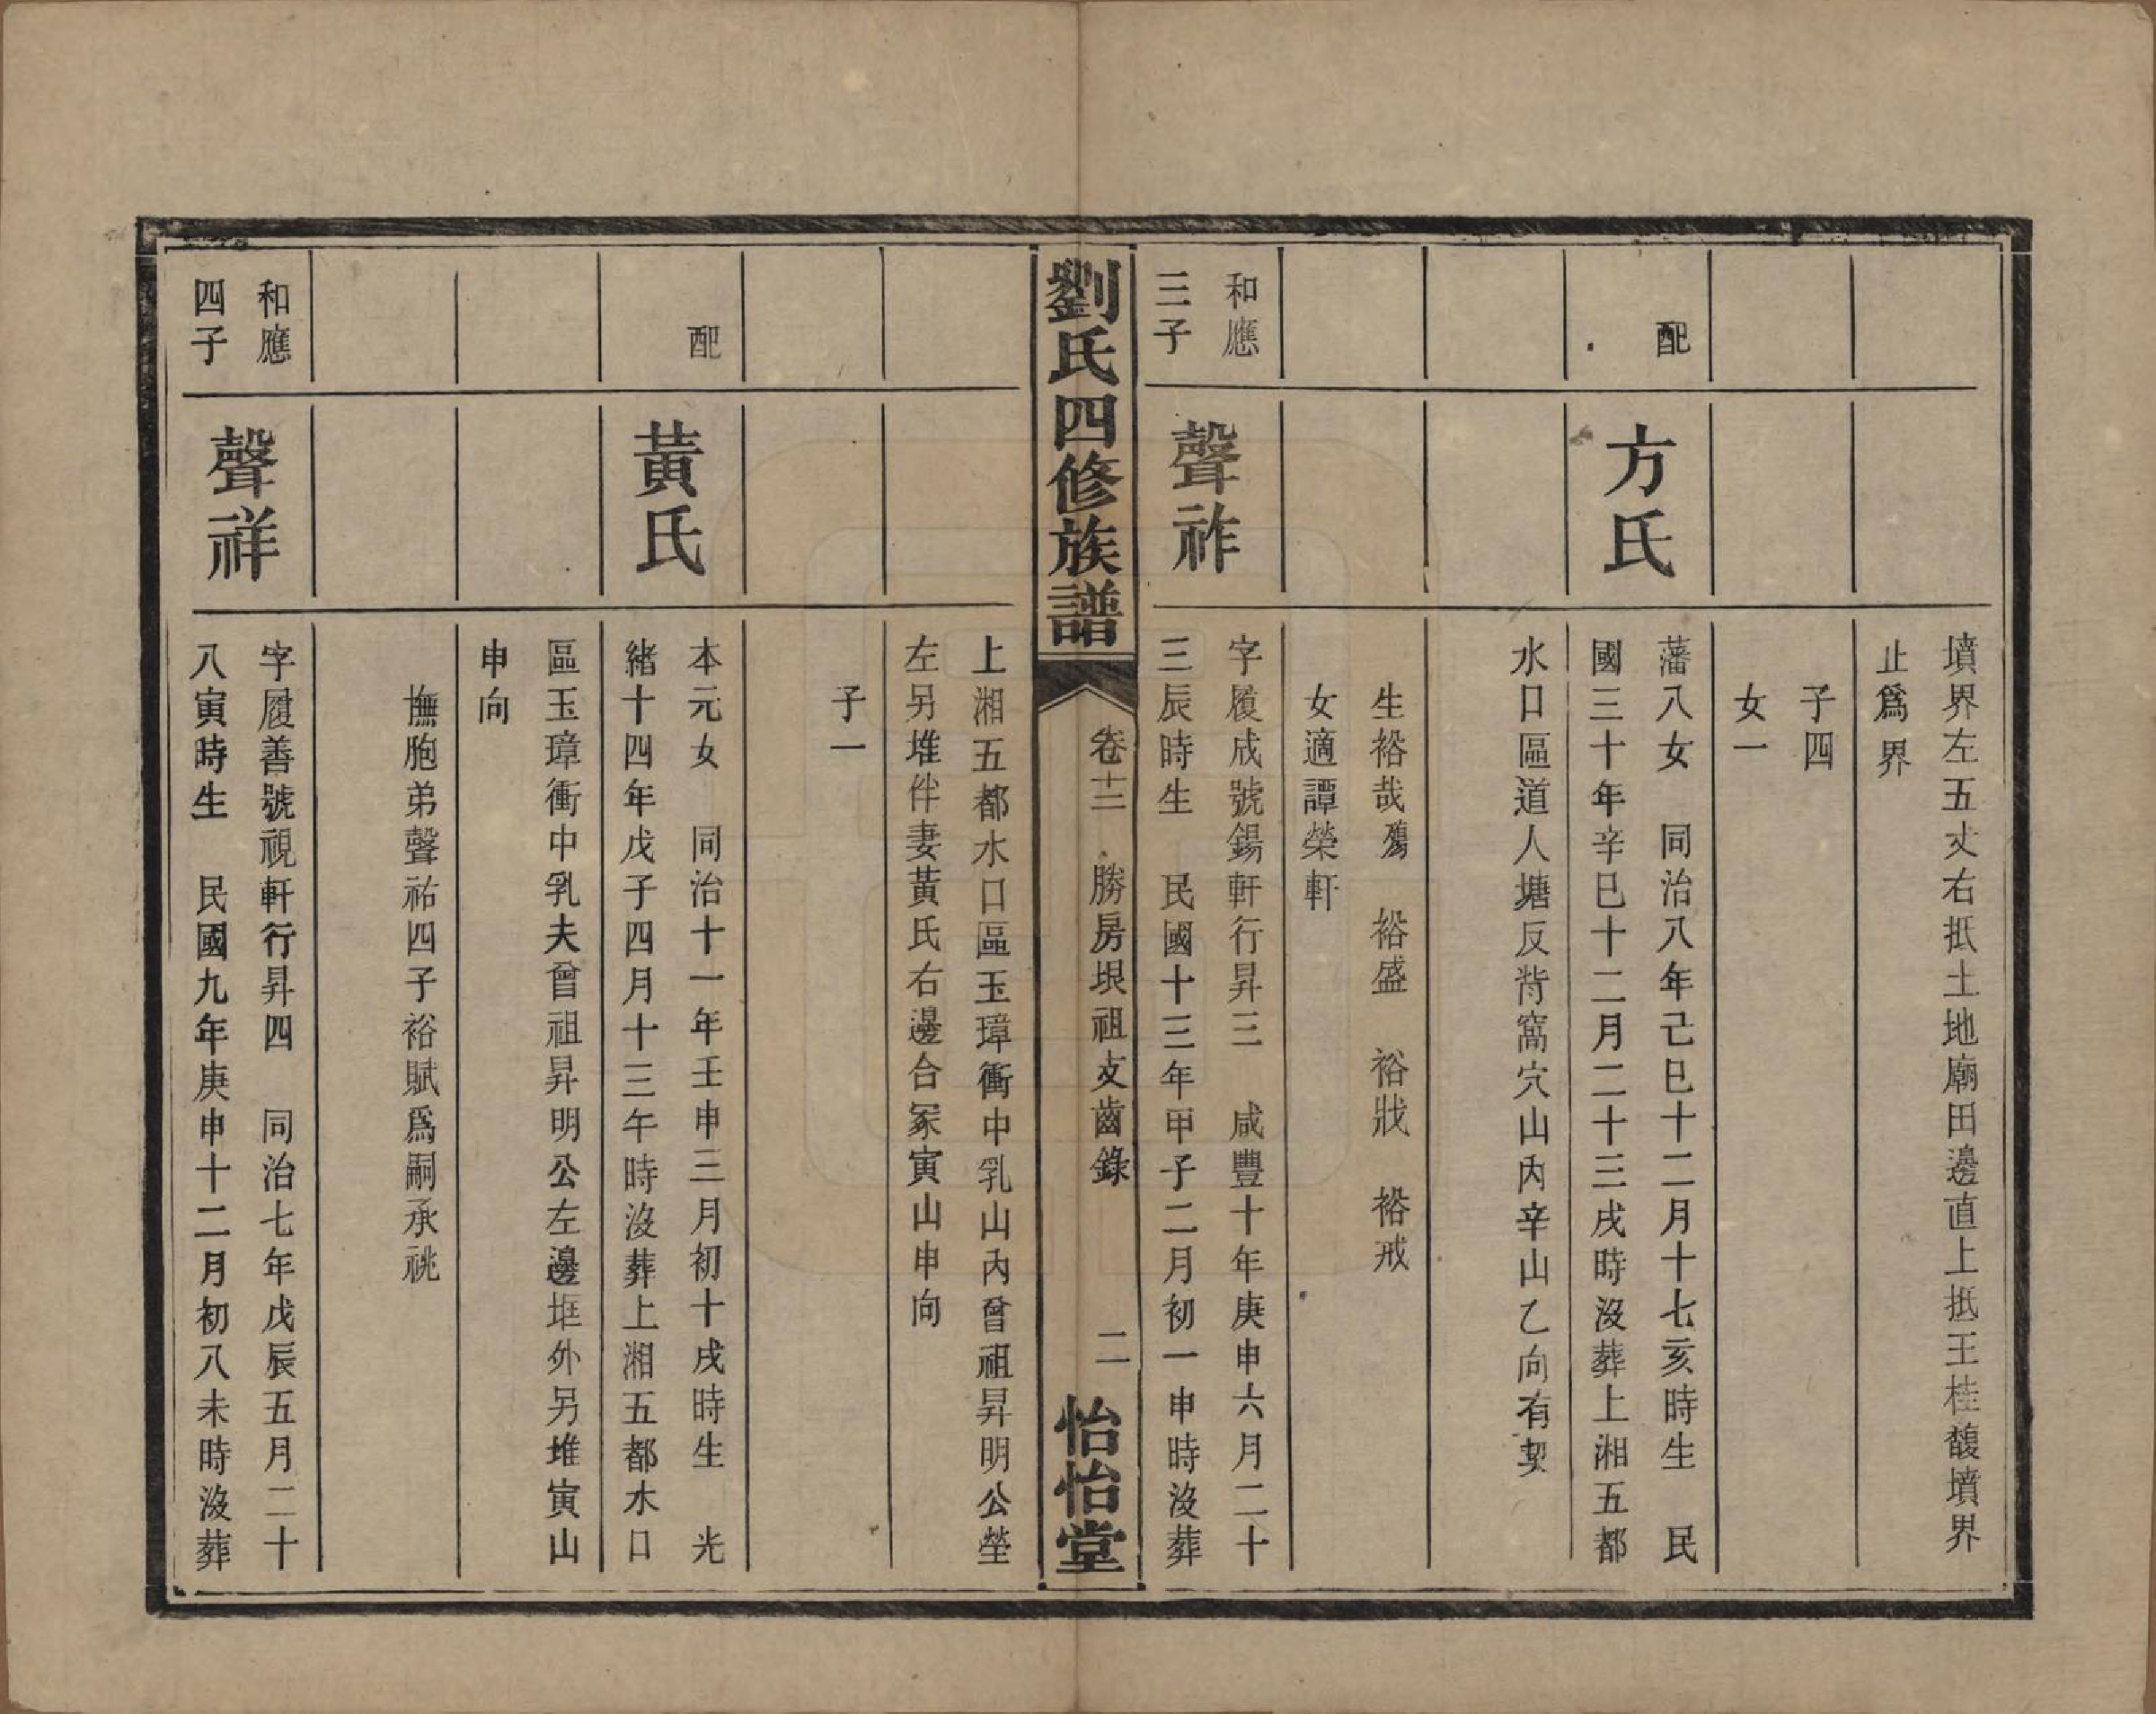 墳界左五丈右抵土地廟田邊直上抵王桂馥墳界
止爲界
子四
女一
配
方氏
藩八女　同治八年己巳十二月十七亥時生　民
國三十年辛巳十二月二十三戌時沒葬上湘五都
水口區道人塘反背窩穴山內辛山乙向有契
生裕哉殤　裕盛　裕戕　裕戒
女適譚榮軒
和應
三子
聲祚
字履成號錫軒行昇三　咸豐十年庚申六月二十
三辰時生　民國十三年甲子二月初一申時沒葬
劉氏四修族譜
卷十二　勝房垠祖支齒錄
二
怡怡堂
上湘五都水口區玉璋衝中乳山內曾祖昇明公塋
左另堆伴妻黃氏右邊合冢寅山申向
子一
配
黃氏
本元女　同治十一年壬申三月初十戌時生　光
緒十四年戊子四月十三午時沒葬上湘五都水口
區玉璋衝中乳夫曾祖昇明公左邊堆外另堆寅山
申向
撫胞弟聲祐四子裕賦爲嗣承祧
和應
四子
聲祥
字履善號視軒行昇四　同治七年戊辰五月二十
八寅時生　民國九年庚申十二月初八未時沒葬